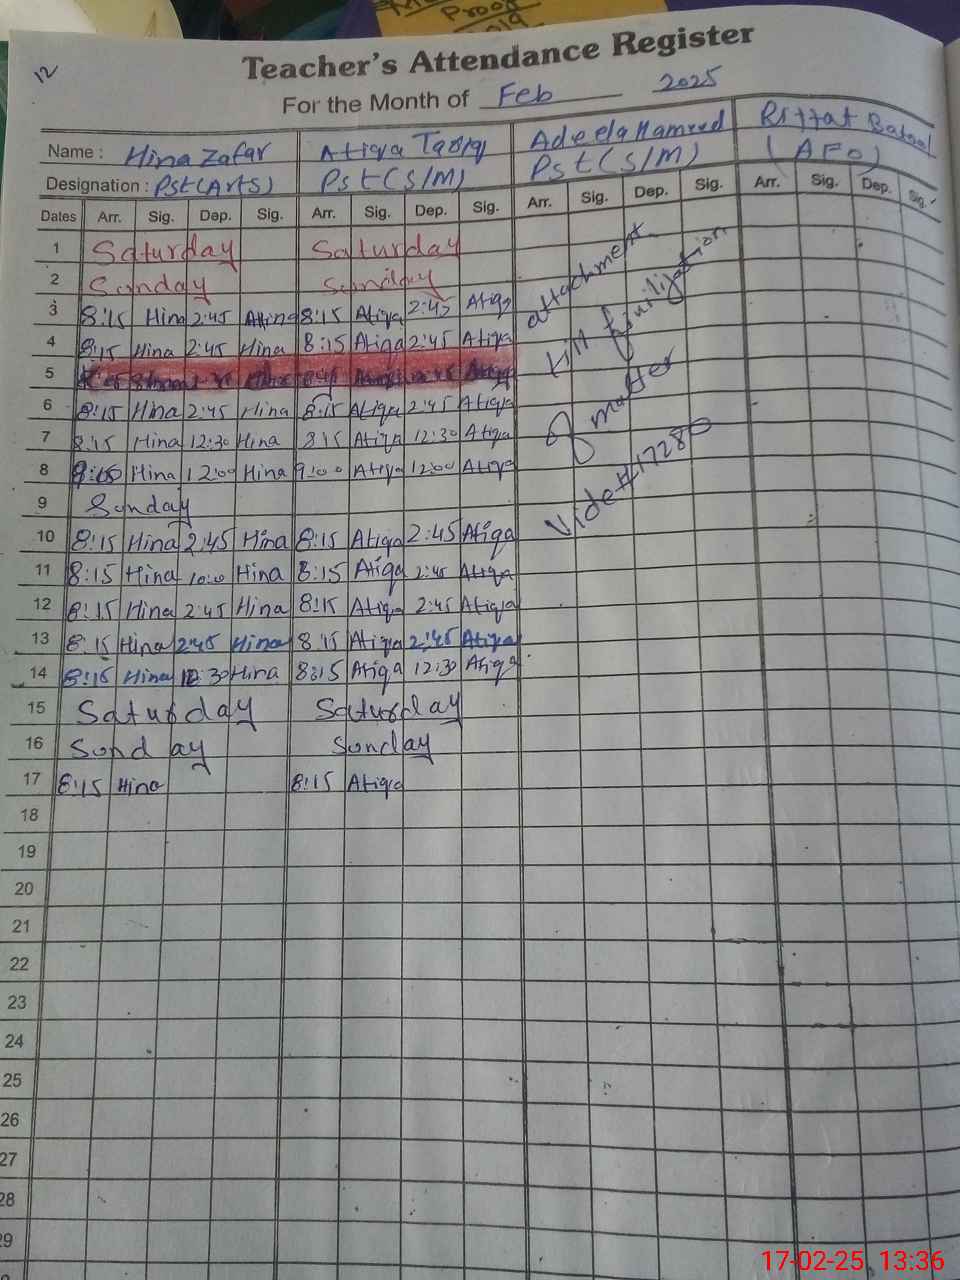 Proof
2019
12
Teacher's Attendance Register
For the Month of Feb 2025
Name : Hina Zafar Atiqa Tariq Adeela Hameed Riffat Batool
Designation : Pst(Arts) Pst(S/M) Pst(S/M) (AEO)
Dates Arr. Sig. Dep. Sig. Arr. Sig. Dep. Sig. Arr. Sig. Dep. Sig. Arr. Sig. Dep. Sig.
1 Saturday Saturday
2 Sunday Sunday
3 8:15 Hina 2:45 Hina 8:15 Atiqa 2:45 Atiqa
4 8:15 Hina 2:45 Hina 8:15 Atiqa 2:45 Atiqa
5
6 8:15 Hina 2:45 Hina 8:15 Atiqa 2:45 Atiqa
7 8:15 Hina 12:30 Hina 8:15 Atiqa 12:30 Atiqa
8 9:00 Hina 12:00 Hina 9:00 Atiqa 12:00 Atiqa
9 Sunday
10 8:15 Hina 2:45 Hina 8:15 Atiqa 2:45 Atiqa
11 8:15 Hina 10:00 Hina 8:15 Atiqa 2:45 Atiqa
12 8:15 Hina 2:45 Hina 8:15 Atiqa 2:45 Atiqa
13 8:15 Hina 2:45 Hina 8:15 Atiqa 2:45 Atiqa
14 8:15 Hina 12:30 Hina 8:15 Atiqa 12:30 Atiqa
15 Saturday Saturday
16 Sunday Sunday
17 8:15 Hina 8:15 Atiqa
18
19
20
21
22
23
24
25
26
27
28
29
attachment
till finilization
of matter
Vide# 17280
17-02-25 13:36